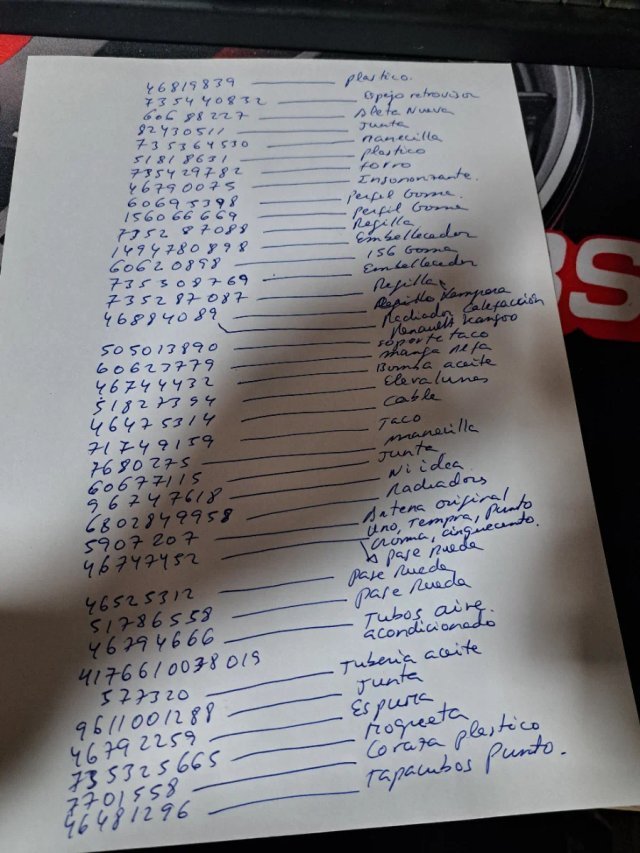 46819839 — plastico.
735440832 — Espejo retrovisor
60688227 — Aleta Nueva
82430511 — Junta
735364530 — manecilla
51818631 — plastico
735429782 — forro
46790075 — Insonorizante.
60695398 — perfil Goma.
156066669 — perfil Goma
7352 87088 — Regilla
1494780898 — Embellecedor
60620898 — 156 Goma
735308769 — Embellecedor
735287087 — Regilla
46884089 — Rempera
Radiador Calefacción
Renault Kangoo
505013890 — soporte taco
60623779 — manga Alfa
46744432 — Bomba aceite
51827394 — Elevalunas
46475314 — Cable
71749159 — Taco
7680275 — manecilla
60677115 — Junta
96747618 — Ni idea
6802849958 — Radiadores
5907207 — Antena original
uno, tempra, punto
croma, cinquecento.
46747452 — pase Rueda
46525312 — pase Rueda
51786558 — pase Rueda
46794666 — Tubos aire.
acondicionado
4176610038019
577320 — Tuberia aceite
9611001288 — Junta
46792259 — Espuma
735325665 — Moqueta
7701558 — Coraza plastico
46481296 — Tapacubos Punto.
BS